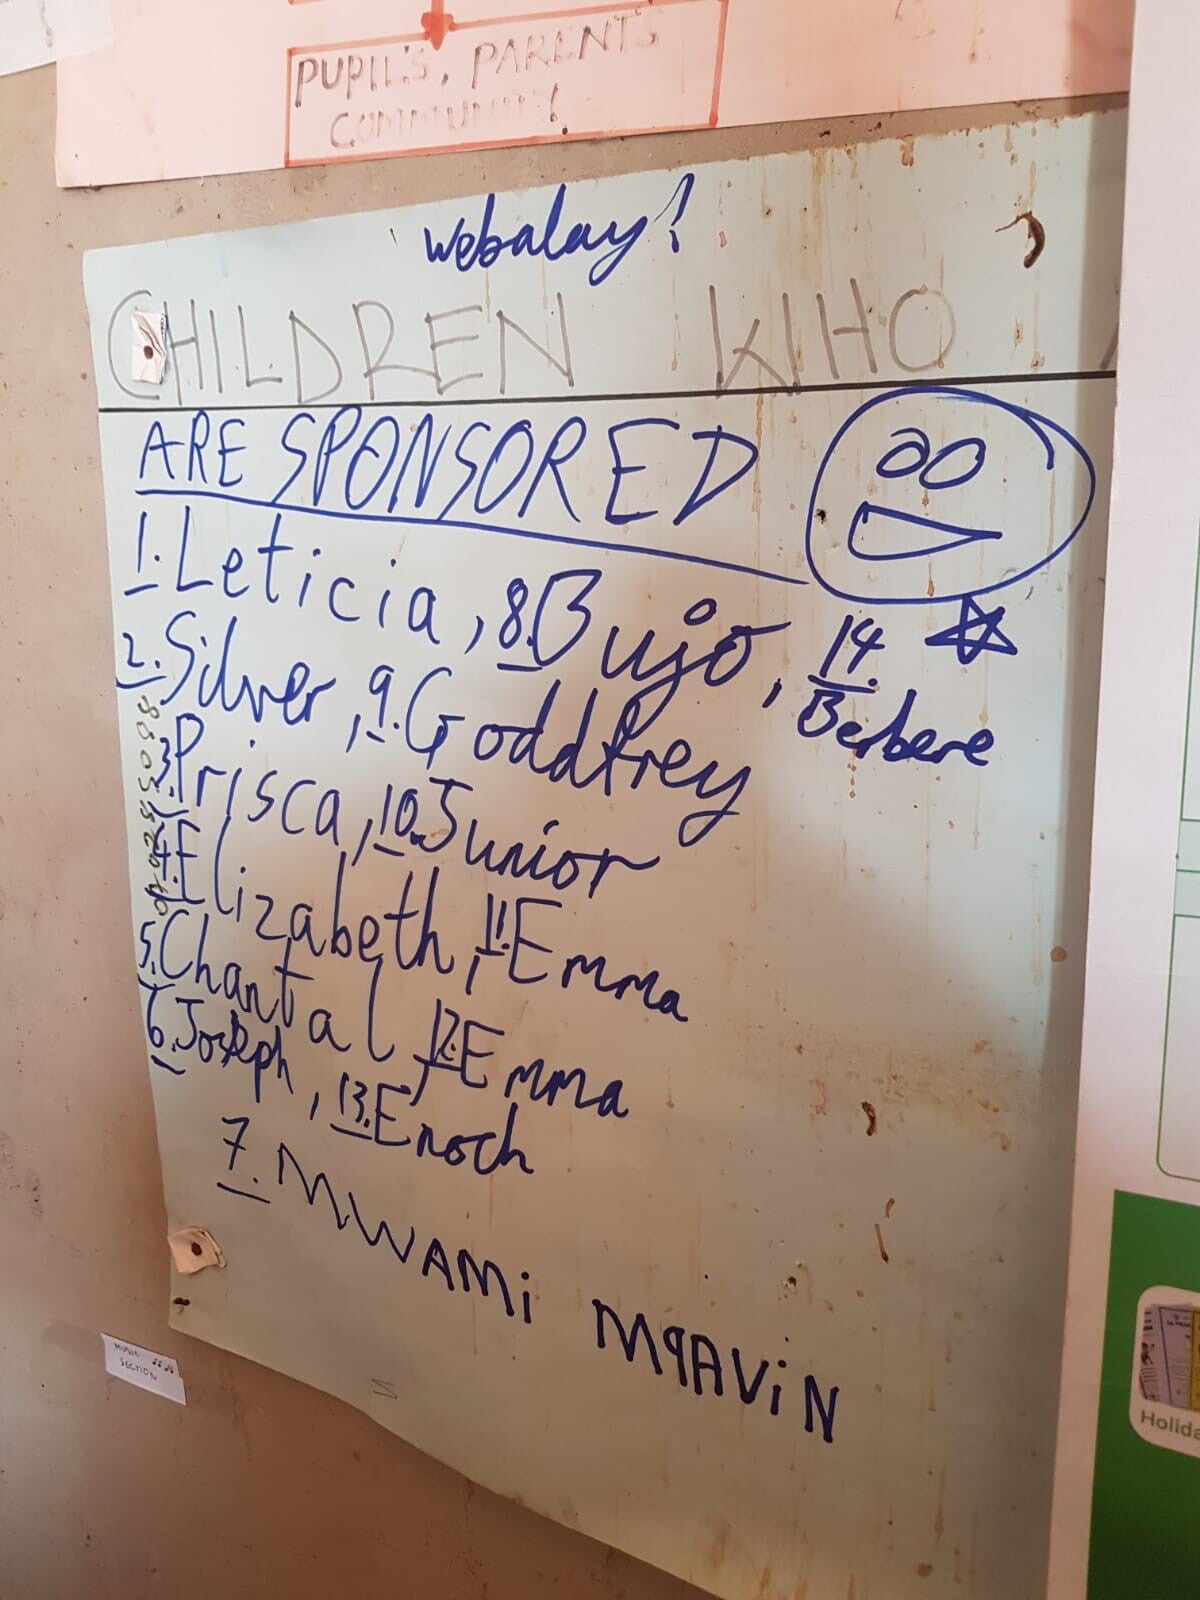 PUPIL'S, PARENTS
COMMUNITY
webalay!
CHILDREN WHO
ARE SPONSORED
1. Leticia, 8. Bujo, 14. Berbere
2. Silver, 9. Goddfrey
3. Prisca, 10. Junior
4. Elizabeth, 11. Emma
5. Chantal, 12. Emma
6. Joseph, 13. Enoch
7. MWAMi MqAViN
MUSIC
SECTION
Holida